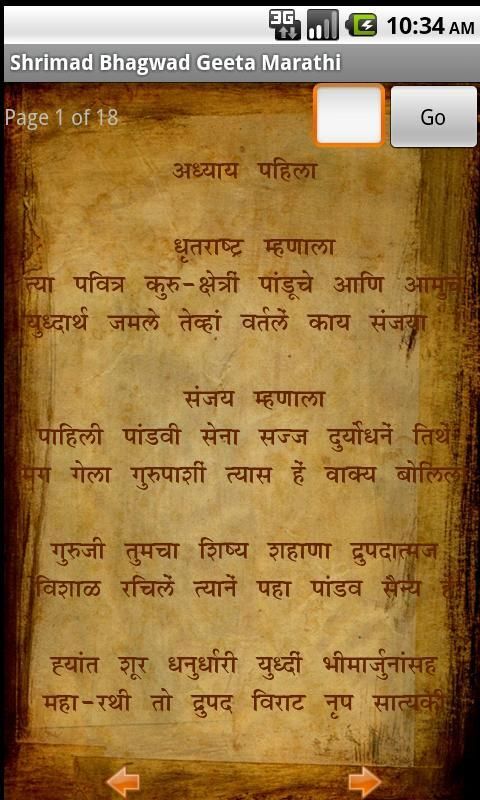 3G
10:34 AM
Shrimad Bhagwad Geeta Marathi
Page 1 of 18
Go
अध्याय पहिला
धृतराष्ट्र म्हणाला
त्या पवित्र कुरु-क्षेत्रीं पांडूचे आणि आमुचे
युध्दार्थ जमले तेव्हां वर्तलें काय संजया
संजय म्हणाला
पाहिली पांडवी सेना सज्ज दुर्योधनें तिथें
मग गेला गुरुपाशीं त्यास हें वाक्य बोलिला
गुरुजी तुमचा शिष्य शहाणा द्रुपदात्मज
विशाळ रचिलें त्यानें पहा पांडव सैन्य हें
ह्यांत शूर धनुर्धारी युध्दीं भीमार्जुनांसह
महा-रथी तो द्रुपद विराट नृप सात्यकी